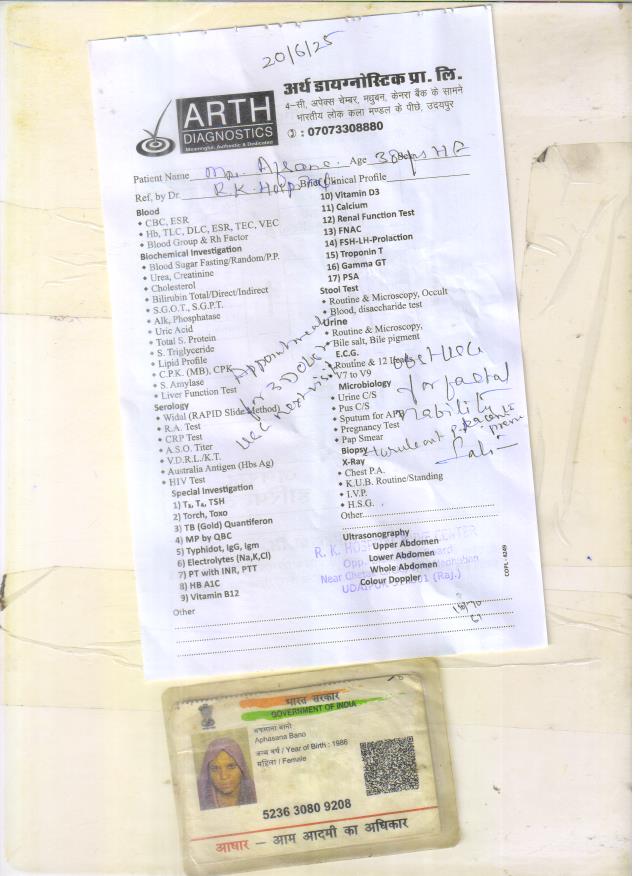 20/6/25
ARTH
DIAGNOSTICS
Meaningful, Authentic & Dedicated
अर्थ डायग्नोस्टिक प्रा. लि.
4–सी, अपेक्स चेम्बर, मधुबन, केनरा बैंक के सामने
भारतीय लोक कला मण्डल के पीछे, उदयपुर
: 07073308880
Patient Name Age 38
Ref, by Dr. R.K. Clinical Profile
Blood
• CBC, ESR
• Hb, TLC, DLC, ESR, TEC, VEC
• Blood Group & Rh Factor
Biochemical Investigation
• Blood Sugar Fasting/Random/P.P.
• Urea, Creatinine
• Cholesterol
• Bilirubin Total/Direct/Indirect
• S.G.O.T., S.G.P.T.
• Alk, Phosphatase
• Uric Acid
• Total S. Protein
• S. Triglyceride
• Lipid Profile
• C.P.K. (MB), CPK
• S. Amylase
• Liver Function Test
Serology
• Widal (RAPID Slide Method)
• R.A. Test
• CRP Test
• A.S.O. Titer
• V.D.R.L./K.T.
• Australia Antigen (Hbs Ag)
• HIV Test
Special Investigation
1) T₃, T₄, TSH
2) Torch, Toxo
3) TB (Gold) Quantiferon
4) MP by QBC
5) Typhidot, IgG, Igm
6) Electrolytes (Na,K,Cl)
7) PT with INR, PTT
8) HB A1C
9) Vitamin B12
Other
10) Vitamin D3
11) Calcium
12) Renal Function Test
13) FNAC
14) FSH-LH-Prolaction
15) Troponin T
16) Gamma GT
17) PSA
Stool Test
• Routine & Microscopy, Occult
• Blood, disaccharide test
Urine
• Routine & Microscopy,
• Bile salt, Bile pigment
E.C.G.
• Routine & 12
• V7 to V9
Microbiology
• Urine C/S
• Pus C/S
• Sputum for
• Pregnancy Test
• Pap Smear
Biopsy
X-Ray
• Chest P.A.
• K.U.B. Routine/Standing
• I.V.P.
• H.S.G.
Other
Ultrasonography
Upper Abdomen
Lower Abdomen
Whole Abdomen
Colour Doppler
Appointment
for
next visit
for
R. K.
UDAIPUR (Raj.)
COPL - 6249
भारत सरकार
GOVERNMENT OF INDIA
अफसाना बानो
Aphasana Bano
जन्म वर्ष / Year of Birth : 1986
महिला / Female
5236 3080 9208
आधार – आम आदमी का अधिकार